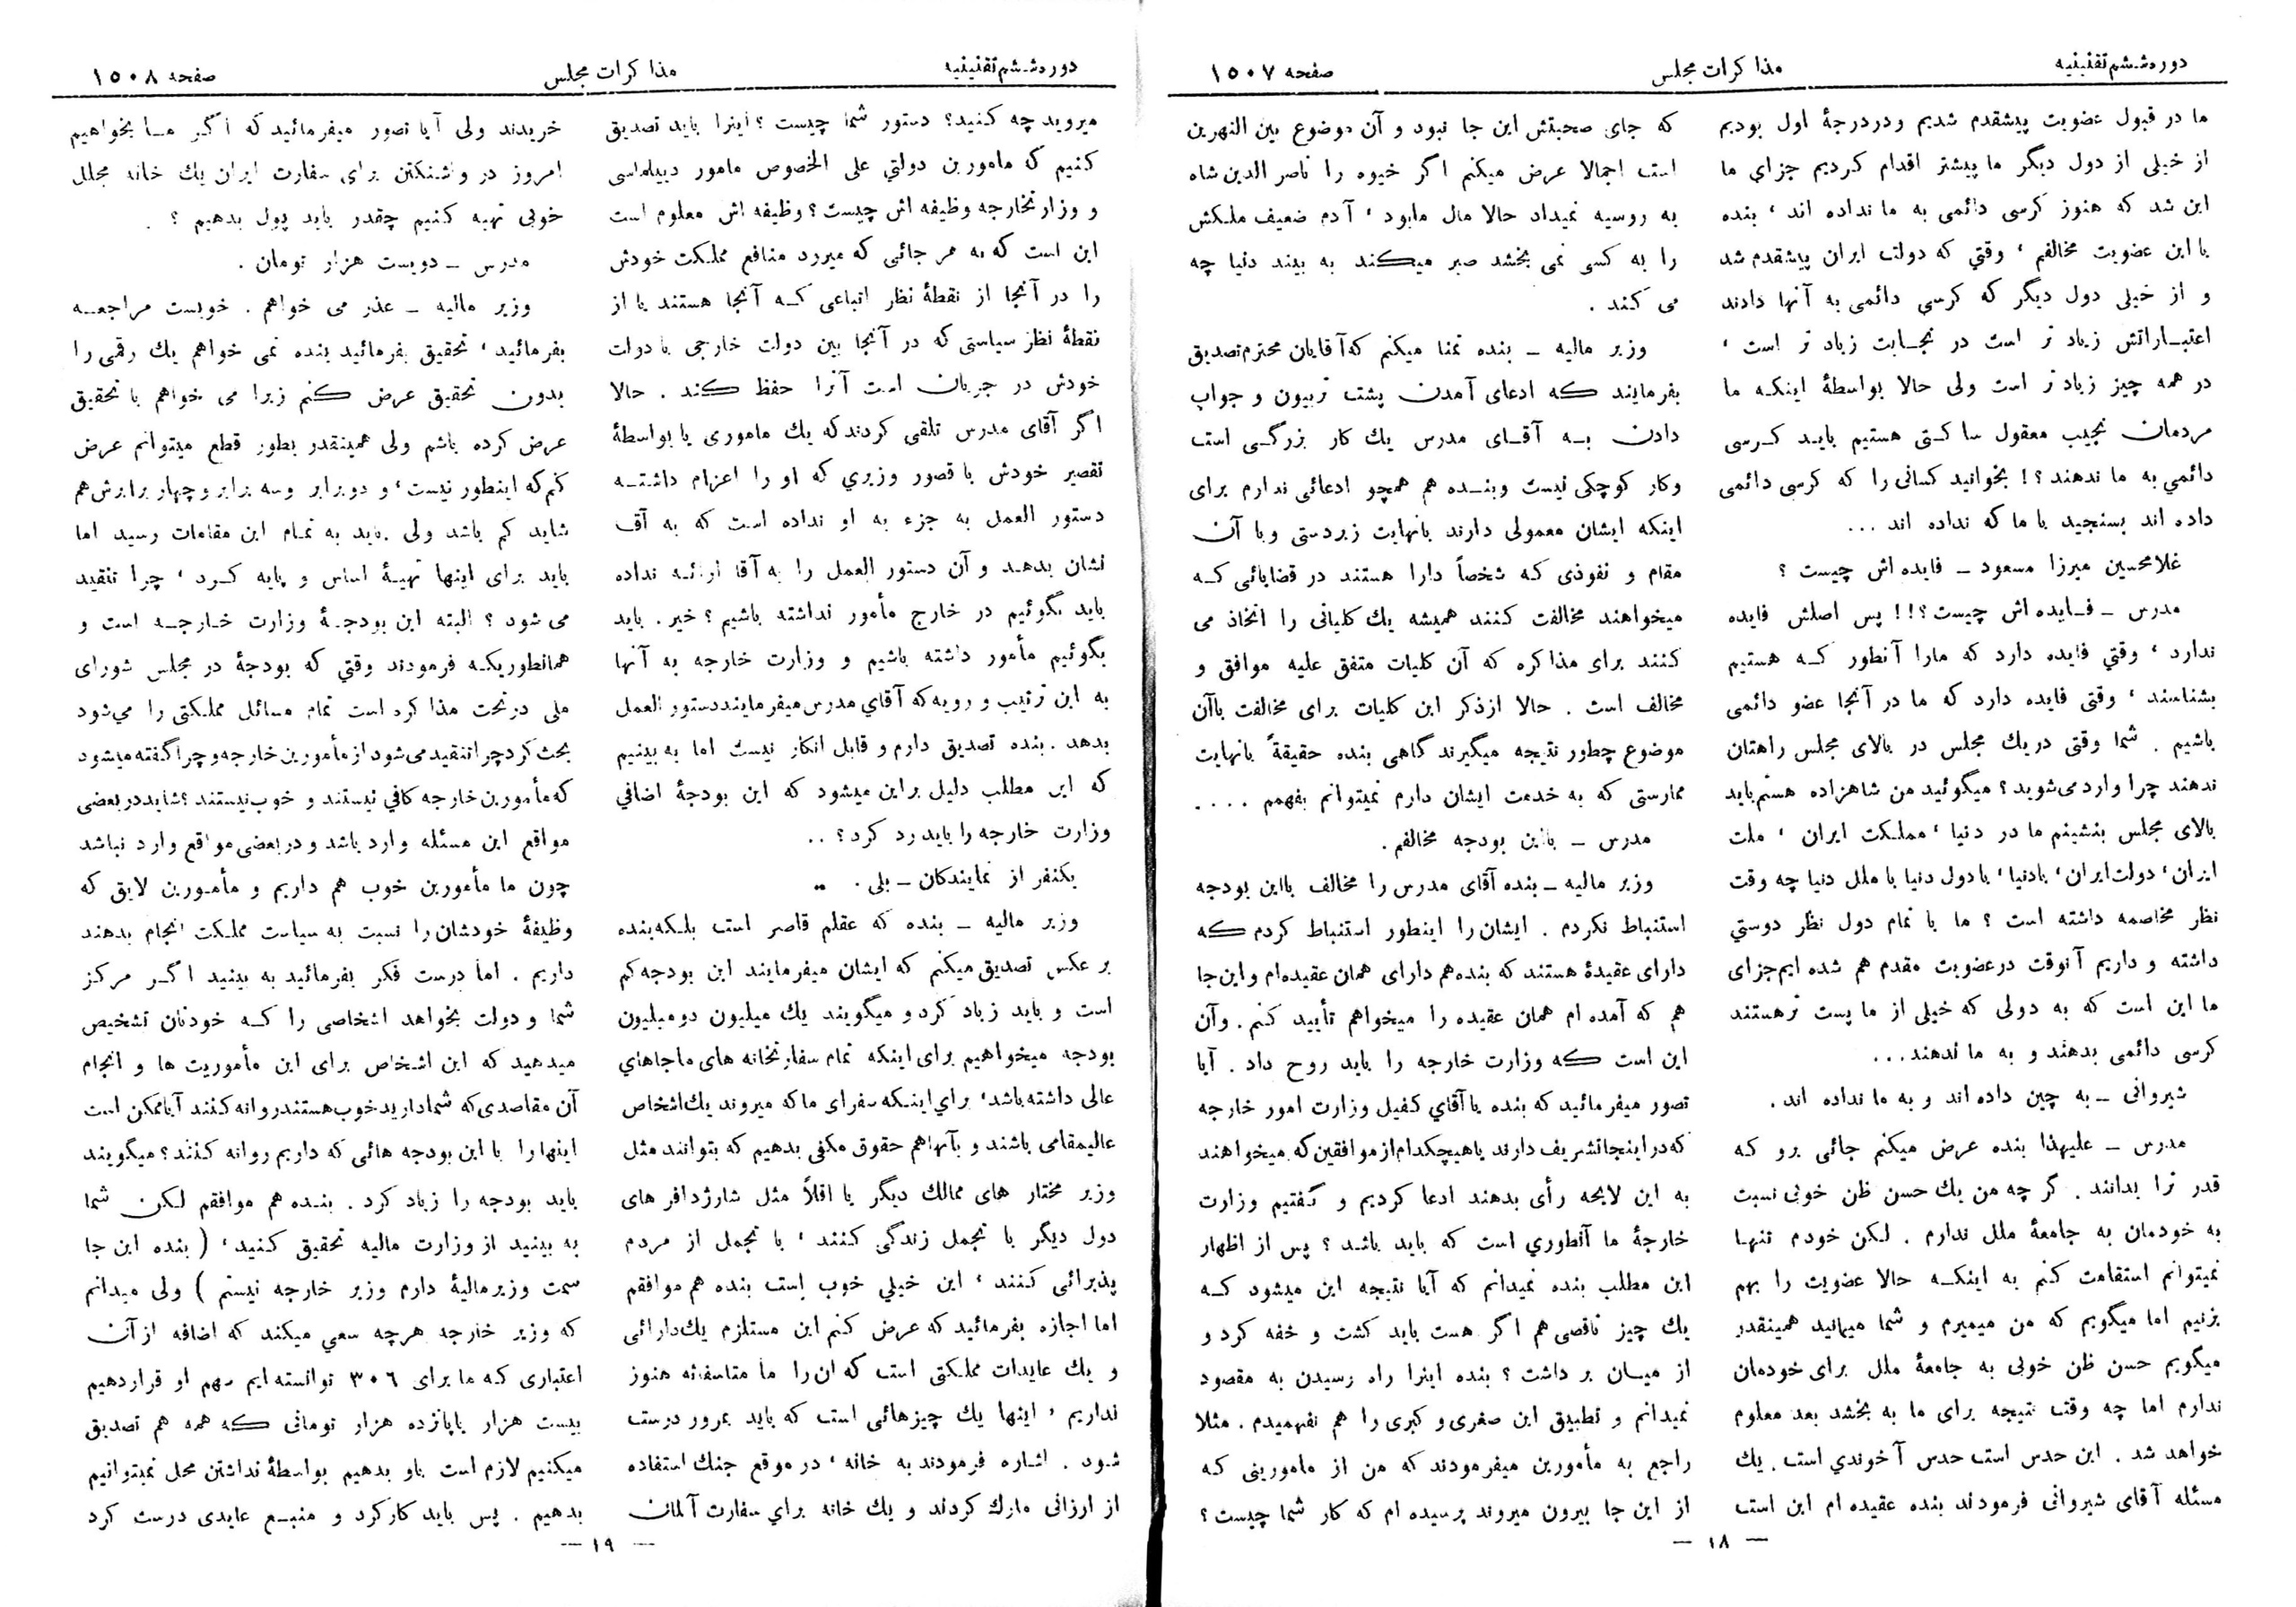 دوره ششم تقنینیه
مذاکرات مجلس
صفحه ۱۵۰۷
ما در قبول عضویت پیشقدم شدیم ودردرجهٔ اول بودیم
از خیلی از دول دیگر ما پیشتر اقدام کردیم جزای ما
این شد که هنوز کرسی دائمی به ما نداده اند ، بنده
با این عضویت مخالفم ، وقتي که دولت ایران پیشقدم شد
و از خیلی دول دیگر که کرسی دائمی به آنها دادند
اعتبـاراتش زیاد تر است در نجـابت زیاد تر است ،
در همه چیز زیادتر است ولی حالا بواسطهٔ اینکـه ما
مردمان نجیب معقول ساکتی هستیم باید کـرسی
دائمي به ما ندهند ؟! بخوانید کسانی را که کرسی دائمی
داده اند بسنجید با ما که نداده اند ...
غلامحسین میرزا مسعود ـ فایده اش چیست ؟
مدرس ـ فـایده اش چیست؟!! پس اصلش فایده
ندارد ، وقتي فایده دارد که مارا آنطور کـه هستیم
بشناسند ، وقتی فایده دارد که ما در آنجا عضو دائمی
باشیم . شما وقتی دریك مجلس در بالای مجلس راهتان
ندهند چرا وارد می‌شوید ؟ میگوئید من شاهزاده هستم باید
بالای مجلس بنشینم ما در دنیا ، مملکت ایران ، ملت
ایران ، دولت ایران ، بادنیا ، بادول دنیا با ملل دنیا چه وقت
نظر مخاصمه داشته است ؟ ما با تمام دول نظر دوستي
داشته و داریم آنوقت درعضویت مقدم هم شده ایم‌جزای
ما این است که به دولی که خیلی از ما پست ترهستند
کرسی دائمی بدهند و به ما ندهند...
شیروانی ـ به چین داده اند و به ما نداده اند .
مدرس ـ علیهذا بنده عرض میکنم جائی برو که
قدر ترا بدانند . گر چه من یك حسن ظن خوبی نسبت
به خودمان به جامعهٔ ملل ندارم . لکن خودم تنهـا
نمیتوانم استقامت کنم به اینکـه حالا عضویت را بهم
بزنیم اما میگویم که من میمیرم و شما میمانید همینقدر
میگویم حسن ظن خوبی به جامعهٔ ملل برای خودمان
ندارم اما چه وقت نتیجه برای ما به بخشد بعد معلوم
خواهد شد . این حدس است حدس آخوندي است . یك
مسئله آقای شیروانی فرمودند بنده عقیده ام این است
که جای صحبتش این جا نبود و آن موضوع بین النهرین
است اجمالا عرض میکنم اگر خیوه را ناصر الدین شاه
به روسیه نمیداد حالا مال مابود ، آدم ضعیف ملکش
را به کسی نمی بخشد صبر میکند به بیند دنیا چه
می کند .
وزیر مالیه ـ بنده تمنا میکنم که آقایان محترم تصدیق
بفرمایند که ادعای آمدن پشت تریبون و جواب
دادن بـه آقـای مدرس یك کار بزرگـی است
وکار کوچکی نیست وبنـده هم همچو ادعائی ندارم برای
اینکه ایشان معمولی دارند بانهایت زبردستی وبا آن
مقام و نفوذی که شخصاً دارا هستند در قضایائی کـه
میخواهند مخالفت کنند همیشه یك کلیاتی را اتخاذ می
کنند برای مذاکره که آن کلیات متفق علیه موافق و
مخالف است . حالا ازذکر این کلیات برای مخالفت باآن
موضوع چطور نتیجه میگیرند گاهی بنده حقیقةً بانهایت
ممارستی که به خدمت ایشان دارم نمیتوانم بفهمم ....
مدرس ـ بااین بودجه مخالفم .
وزیر مالیه ـ بنده آقای مدرس را مخالف بااین بودجه
استنباط نکردم . ایشان را اینطور استنباط کردم که
دارای عقیدهٔ هستند که بنده‌هم دارای همان عقیده‌ام واین‌جا
هم که آمده ام همان عقیده را میخواهم تأیید کنم . وآن
این است که وزارت خارجه را باید روح داد . آیا
تصور میفرمائید که بنده یا آقاي کفیل وزارت امور خارجه
که دراینجا تشریف دارند یا هیچکدام از موافقین که میخواهند
به این لایحه رأی بدهند ادعا کردیم و گفتیم وزارت
خارجهٔ ما آنطوري است که باید باشد ؟ پس از اظهار
این مطلب بنده نمیدانم که آیا نتیجه این میشود کـه
یك چیز ناقصی هم اگر هست باید کشت و خفه کرد و
از میـان بر داشت ؟ بنده اینرا راه رسیدن به مقصود
نمیدانم و تطبیق این صغری و کبری را هم نفهمیدم . مثلا
راجع به مأمورین میفرمودند که من از مامورینی که
از این جا بیرون میروند پرسیده ام که کار شما چیست ؟
— ۱۸ —
دوره ششم تقنینیه
مذاکرات مجلس
صفحه ۱۵۰۸
میروید چه کنید؟ دستور شما چیست ؟ اینرا باید تصدیق
کنیم که مامورین دولتي علی الخصوص مامور دیپلماسی
و وزارتخارجه وظیفه اش چیست ؟ وظیفه اش معلوم است
این است که به هر جائی که میرود منافع مملکت خودش
را در آنجا از نقطهٔ نظر اتباعی کـه آنجا هستند یا از
نقطهٔ نظر سیاستی که در آنجا بین دولت خارجی با دولت
خودش در جریان است آنرا حفظ کند . حالا
اگر آقای مدرس تلقی کردند که یك ماموری یا بواسطهٔ
تقصیر خودش یا قصور وزیري که او را اعزام داشتـه
دستور العمل به جزء به او نداده است که به آقا
نشان بدهـد و آن دستور العمل را به آقا ارائـه نداده
باید بگوئیم در خارج مأمور نداشته باشیم ؟ خیر . باید
بگوئیم مأمور داشته باشیم و وزارت خارجه به آنها
به این ترتیب و رویه که آقاي مدرس میفرمایند دستور العمل
بدهد . بنده تصدیق دارم و قابل انکار نیست اما به بینیم
که این مطلب دلیل براین میشود که این بودجهٔ اضافي
وزارت خارجه را باید رد کرد ؟ ..
یکنفر از نمایندکان ـ بلی . ..
وزیر مالیه ـ بنده که عقلم قاصر است بلکه بنده
بر عکس تصدیق میکنم که ایشان میفرمایند این بودجه کم
است و باید زیاد کرد و میگویند یك میلیون دو میلیون
بودجه میخواهیم برای اینکه تمام سفارتخانه های ما جاهاي
عالی داشته باشد ، براي اینکه سفرای ما که میروند یك اشخاص
عالیمقامی باشند و بآنهاهم حقوق مکفی بدهیم که بتوانند مثل
وزیر مختار های ممالك دیگر یا اقلاً مثل شارژدافر های
دول دیگر با تجمل زندگی کنند ، با تجمل از مردم
پذیرائی کنند ، این خیلي خوب است بنده هم موافقم
اما اجازه بفرمائید که عرض کنم این مستلزم یك دارائی
و یك عایدات مملکتی است که آن را ما متاسفانه هنوز
نداریم ، اینها یك چیزهائی است که باید بمرور درست
شود . اشاره فرمودند به خانه ، در موقع جنك استفاده
از ارزانی مارك کردند و یك خانه براي سفارت آلمان
خریدند ولی آیا تصور میفرمائید که اگر مـا بخواهیم
امروز در واشنگتن برای سفارت ایران یك خانه مجلل
خوبی تهیه کنیم چقدر باید پول بدهیم ؟ .
مدرس ـ دویست هزار تومان .
وزیر مالیه ـ عذر می خواهم . خوبست مراجعـه
بفرمائید ، تحقیق بفرمائید بنده نمی خواهم یك رقمی را
بدون تحقیق عرض کنم زیرا می خواهم با تحقیق
عرض کرده باشم ولی همینقدر بطور قطع میتوانم عرض
کنم که اینطور نیست ، و دوبرابر وسه برابر و چهار برابرش هم
شاید کم باشد ولی باید به تمام این مقامات رسید اما
باید برای اینها تهیهٔ اساس و پایه کـرد ، چرا تنقید
می شود ؟ البته این بودجـهٔ وزارت خـارجـه است و
همانطوریکـه فرمودند وقتي که بودجهٔ در مجلس شورای
ملی درتحت مذاکره است تمام مسائل مملکتی را می‌شود
بحث کرد چرا تنقید می‌شود از مأمورین خارجه و چرا گفته میشود
که مأمورین خارجه کافي نیستند و خوب نیستند ؟ شاید در بعضی
مواقع این مسئله وارد باشد و در بعضی مواقع وارد نباشد
چون ما مأمورین خوب هم داریم و مأمورین لایق که
وظیفهٔ خودشان را نسبت به سیاست مملکت انجام بدهند
داریم . اما درست فکر بفرمائید به بینید اگـر مرکز
شما و دولت بخواهد اشخاصی را کـه خودتان تشخیص
میدهید که این اشخاص برای این مأموریت ها و انجام
آن مقاصدی که شما دارید خوب هستند روانه کنند آیا ممکن است
اینها را با این بودجه هائی که داریم روانه کنند ؟ میگویند
باید بودجه را زیاد کرد . بنـده هم موافقم لکن شما
به بینید از وزارت مالیه تحقیق کنید ، ( بنده این جا
سمت وزیر مالیهٔ دارم وزیر خارجه نیستم ) ولی میدانم
که وزیر خارجه هرچه سعي میکند که اضافه از آن
اعتباری که ما برای ۳۰۶ توانسته ایم سهم او قرار دهیم
بیست هزار یا پانزده هزار تومانی که همه هم تصدیق
میکنیم لازم است باو بدهیم بواسطهٔ نداشتن محل نمیتوانیم
بدهیم . پس باید کار کرد و منبـع عایدی درست کرد
— ۱۹ —